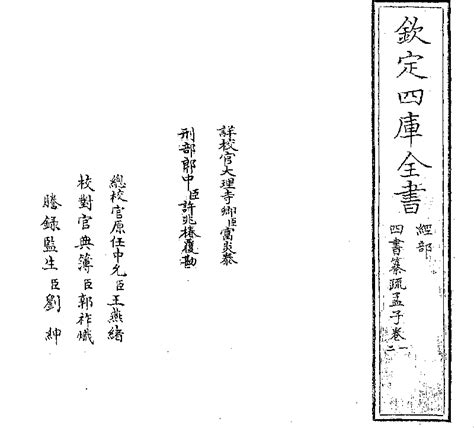 欽定四庫全書
經部
四書纂疏孟子卷一二
詳校官大理寺卿臣富炎泰
刑部郎中臣許兆椿覆勘
總校官原任中允臣王燕緒
校對官典簿臣郭祚熾
謄錄監生臣劉紳